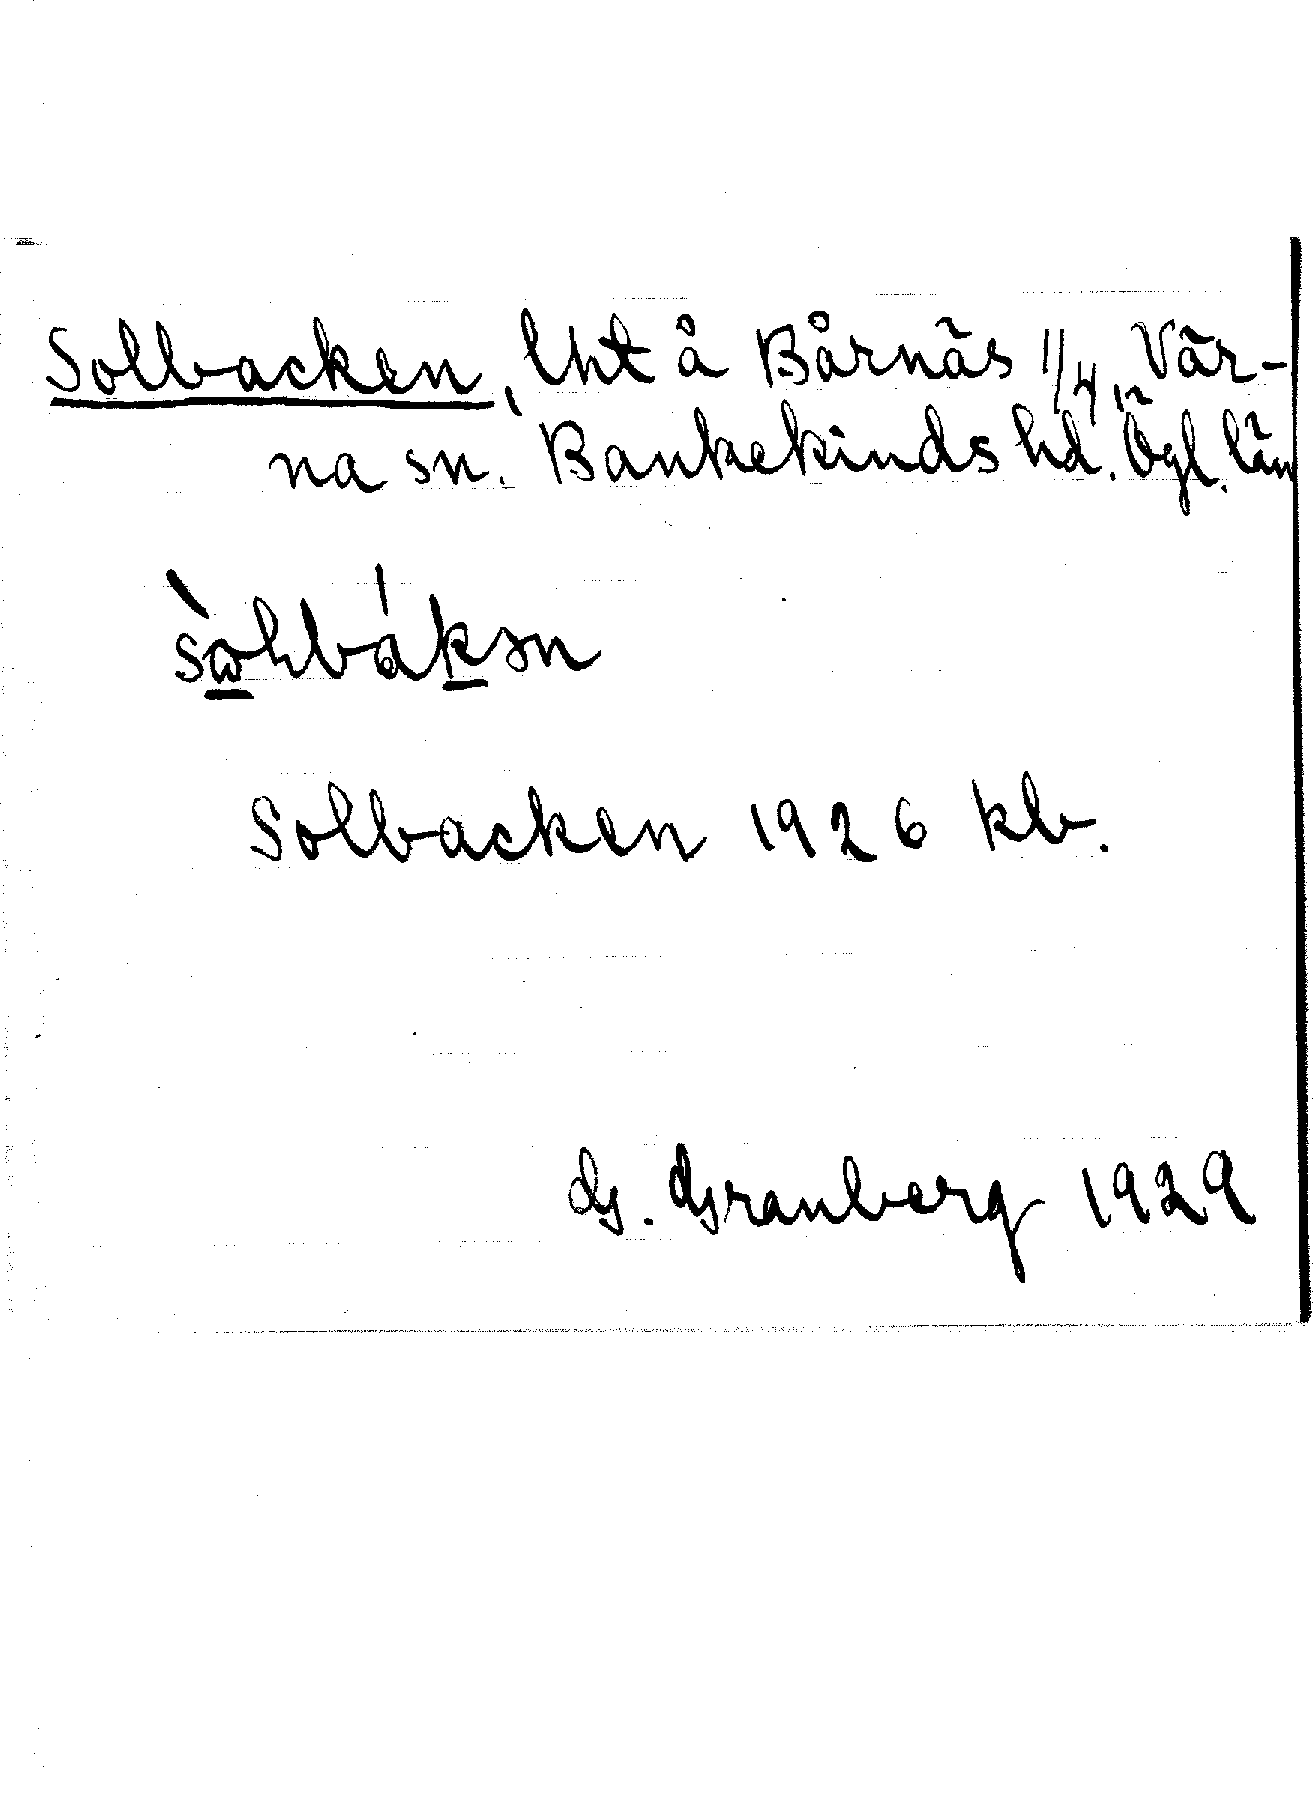 Solbacken, lht å Bårnäs 1/4, Vär-
na sn. Bankekinds hd. Ögl. län
Solbacken 1926 kb.
G. Granberg 1929